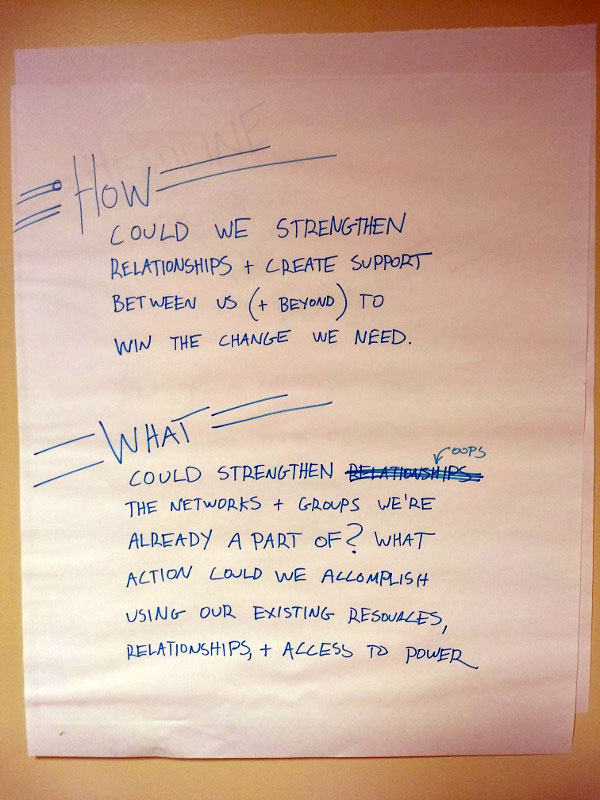 HEADLINE
HOW
COULD WE STRENGTHEN
RELATIONSHIPS + CREATE SUPPORT
BETWEEN US (+ BEYOND) TO
WIN THE CHANGE WE NEED.
WHAT
OOPS
COULD STRENGTHEN RELATIONSHIPS
THE NETWORKS + GROUPS WE'RE
ALREADY A PART OF? WHAT
ACTION COULD WE ACCOMPLISH
USING OUR EXISTING RESOURCES,
RELATIONSHIPS, + ACCESS TO POWER